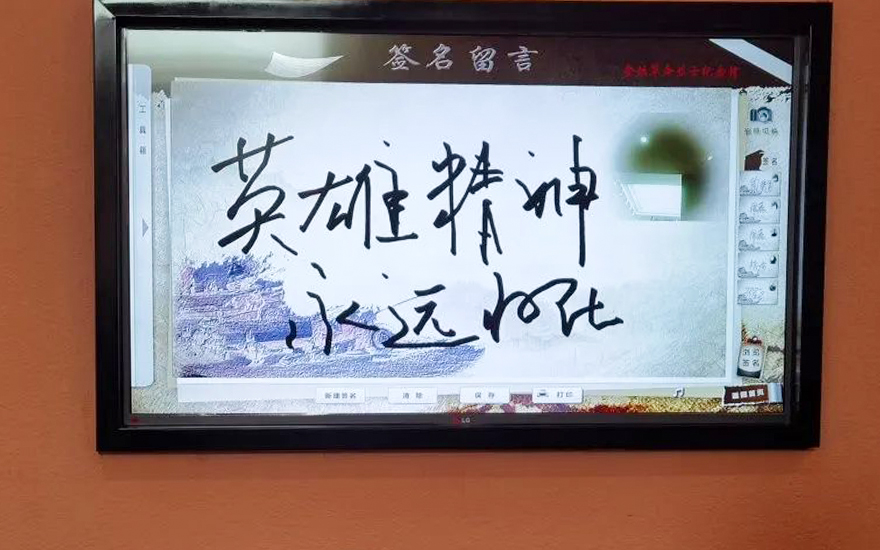 签名留言
工具箱
签名
英雄精神
永远怀念
浏览
签名
新建签名 清除 保存 打印
LG